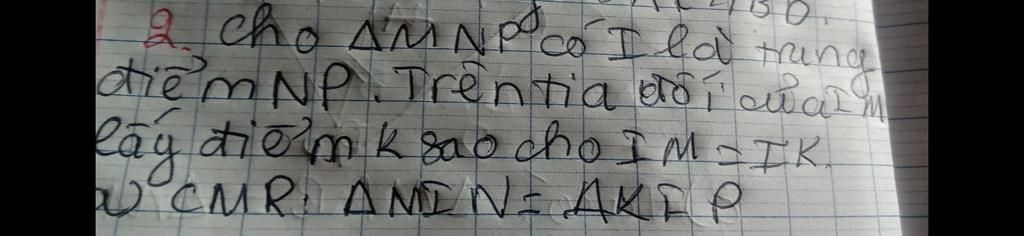 2. Cho ΔMNP có I là trung
điểm NP. Trên tia đối của IM
lấy điểm K sao cho IM = IK.
a) CMR: ΔMIN = ΔKIP